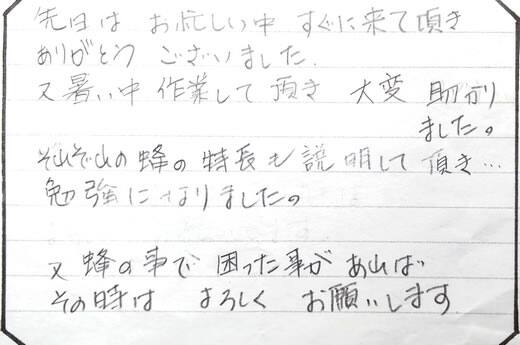 先日は お忙しい中 すぐに来て頂き
ありがとう ございました.
又暑い中 作業して 頂き 大変 助かり
ました。
それぞれの 蜂の 特長も 説明して 頂き…
勉強に なりました。
又 蜂の 事で 困った 事が あれば
その時は よろしく お願いします